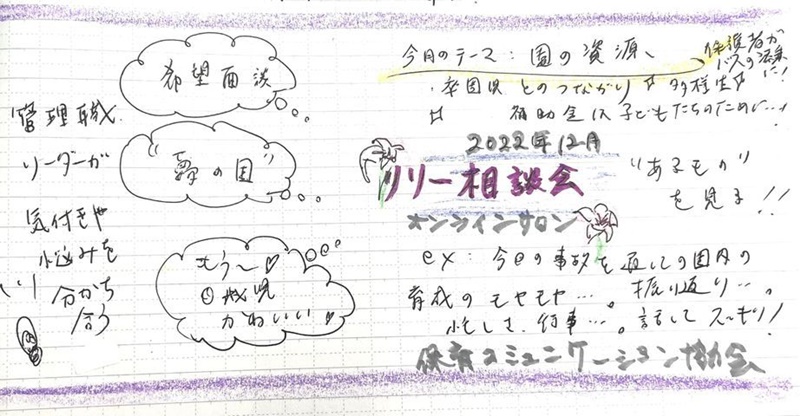 希望面談
管理職
リーダーが
気付きや
悩みを
分かち
合う
の園"
もう〜♡
0歳児
かわいい♡
今月のテーマ：園の資源、
保護者が
バスの添乗
に!
・卒園児とのつながり 多様性
補助金は子どもたちのために…!
2022年12月
リリー相談会
オンラインサロン
"あるもの"
を見る!!
ex：今回の事故を通しての園内の
育成のモヤモヤ…。振り返り…。
忙しさ、行事…。話してスッキリ!
保育コミュニケーション協会